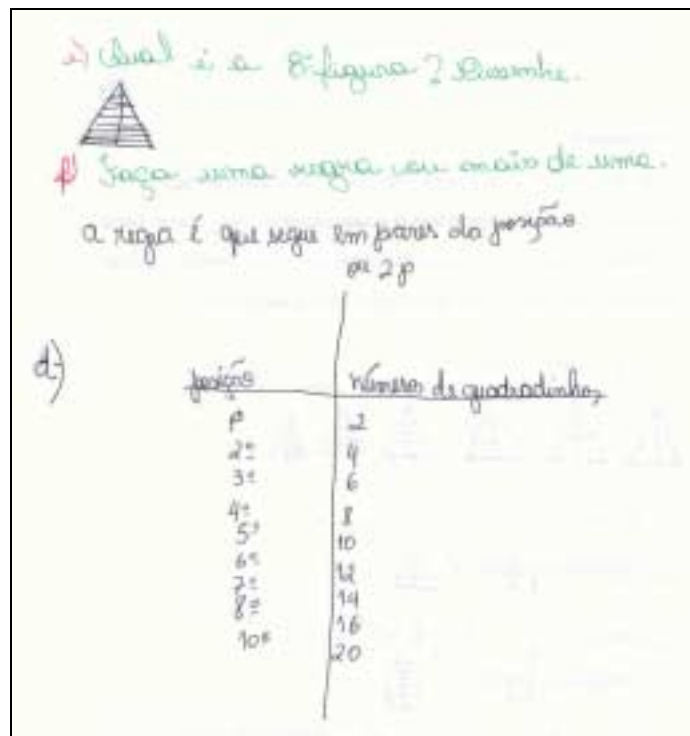 e) Qual é a 8ª figura? Desenhe.
f) Faça uma regra ou mais de uma.
a regra é que segue em pares da posição
ou 2p
d)
posição número de quadradinhos
1º 2
2º 4
3º 6
4º 8
5º 10
6º 12
7º 14
8º 16
10º 20